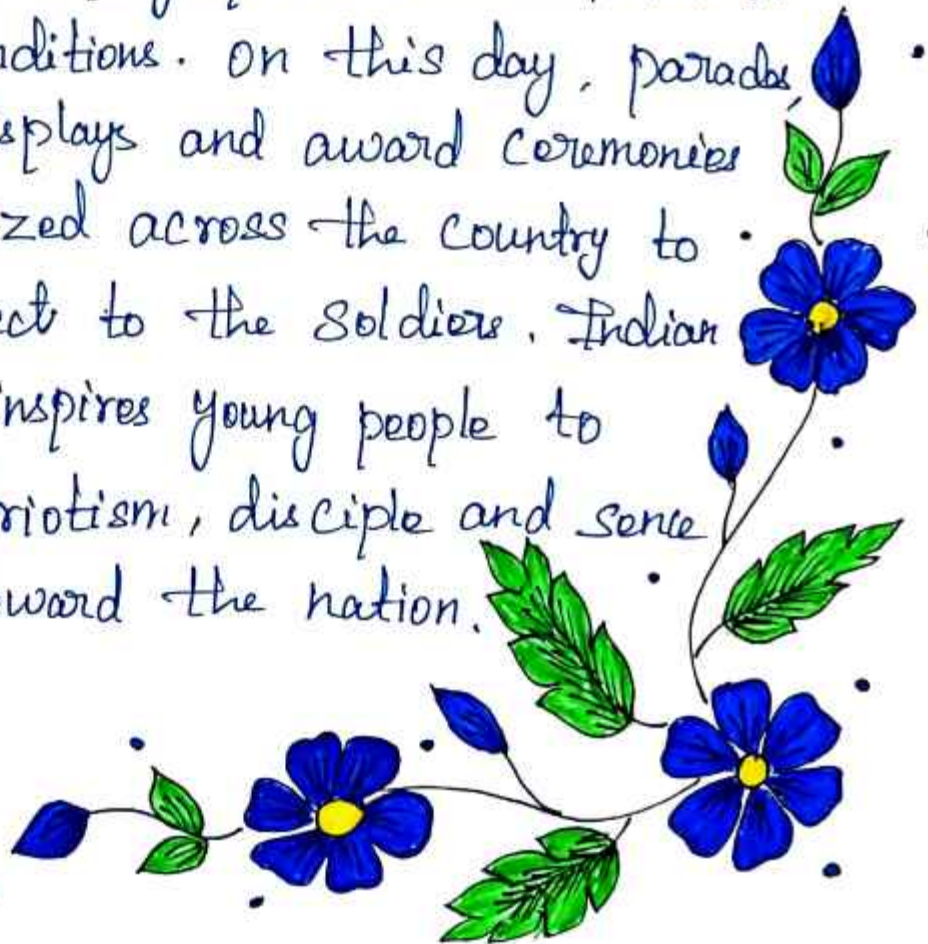 nditions. on this day, parades,
splays and award ceremonies
zed across the country to
ect to the soldiers. Indian
nspires young people to
riotism, disciple and sence
ward the nation.